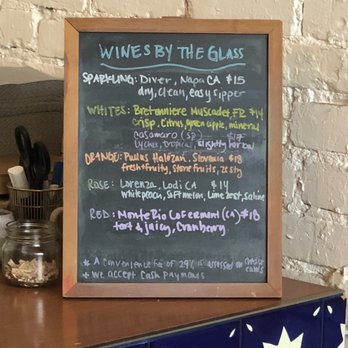 WINES BY THE GLASS
SPARKLING: Diver, Napa CA $15
dry, clean, easy sipper
WHITES: Bretonniere Muscadet, FR $14
crisp, citrus, green apple, mineral
Casamaro (SP)
Lychee, tropical, slightly herbal
ORANGE: Paulus Halozan, Slovenia $13
fresh + fruity, stone fruits, zesty
ROSE: Lorenza, Lodi CA $14
white peach, soft melon, lime zest, saline
RED: Monte Rio (CA) $13
tart & juicy, cranberry
* A Convenience fee of is assessed on
* We accept Cash Payments